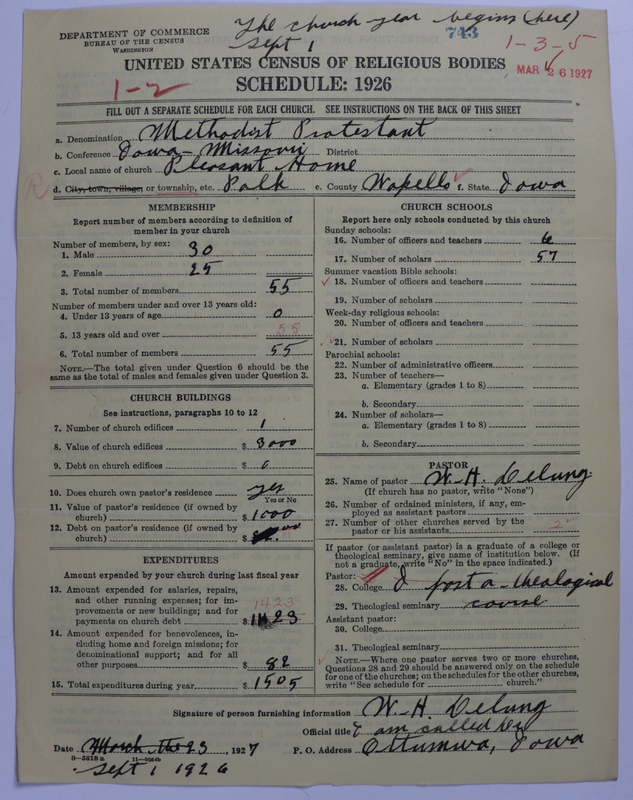 DEPARTMENT OF COMMERCE
BUREAU OF THE CENSUS
WASHINGTON
The church year begins (here)
Sept 1
743
1-3-5
MAR 26 1927
UNITED STATES CENSUS OF RELIGIOUS BODIES
1-2
SCHEDULE: 1926
FILL OUT A SEPARATE SCHEDULE FOR EACH CHURCH. SEE INSTRUCTIONS ON THE BACK OF THIS SHEET
a. Denomination Methodist Protestant
b. Conference Iowa-Missouri District
c. Local name of church Pleasant Home
R
d. City, town, village, or township, etc. Polk e. County Wapello f. State Iowa
MEMBERSHIP
Report number of members according to definition of
member in your church
Number of members, by sex:
1. Male 30
2. Female 25
3. Total number of members 55
Number of members under and over 13 years old:
4. Under 13 years of age 0
5. 13 years old and over 55
6. Total number of members 55
NOTE.—The total given under Question 6 should be
same as the total of males and females given under Question 3.
CHURCH BUILDINGS
See instructions, paragraphs 10 to 12
7. Number of church edifices 1
8. Value of church edifices $ 3000
9. Debt on church edifices $ 0
10. Does church own pastor's residence yes
Yes or No
11. Value of pastor's residence (if owned by
church) $ 1000
12. Debt on pastor's residence (if owned by
church) $
EXPENDITURES
Amount expended by your church during last fiscal year
13. Amount expended for salaries, repairs,
and other running expenses; for im-
provements or new buildings; and for
payments on church debt $ 1423
1423
14. Amount expended for benevolences, in-
cluding home and foreign missions; for
denominational support; and for all
other purposes $ 82
15. Total expenditures during year $ 1505
CHURCH SCHOOLS
Report here only schools conducted by this church
Sunday schools:
16. Number of officers and teachers 6
17. Number of scholars 57
Summer vacation Bible schools:
18. Number of officers and teachers
19. Number of scholars
Week-day religious schools:
20. Number of officers and teachers
21. Number of scholars
Parochial schools:
22. Number of administrative officers
23. Number of teachers—
a. Elementary (grades 1 to 8)
b. Secondary
24. Number of scholars—
a. Elementary (grades 1 to 8)
b. Secondary
PASTOR
25. Name of pastor W. H. Delung
(If church has no pastor, write "None")
26. Number of ordained ministers, if any, em-
ployed as assistant pastors
27. Number of other churches served by the
pastor or his assistants 2
If pastor (or assistant pastor) is a graduate of a college or
theological seminary, give name of institution below. (If
not a graduate, write "No" in the space indicated.)
Pastor:
28. College I post a-theological
29. Theological seminary course
Assistant pastor:
30. College
31. Theological seminary
NOTE.—Where one pastor serves two or more churches,
Questions 28 and 29 should be answered only on the schedule
for one of the churches; on the schedules for the other churches,
write "See schedule for church."
Signature of person furnishing information W. H. Delung
Official title I am called Dr
Date March the 23, 1927 P. O. Address Ottumwa, Iowa
8-5518 a 11-9064b
Sept 1 1926